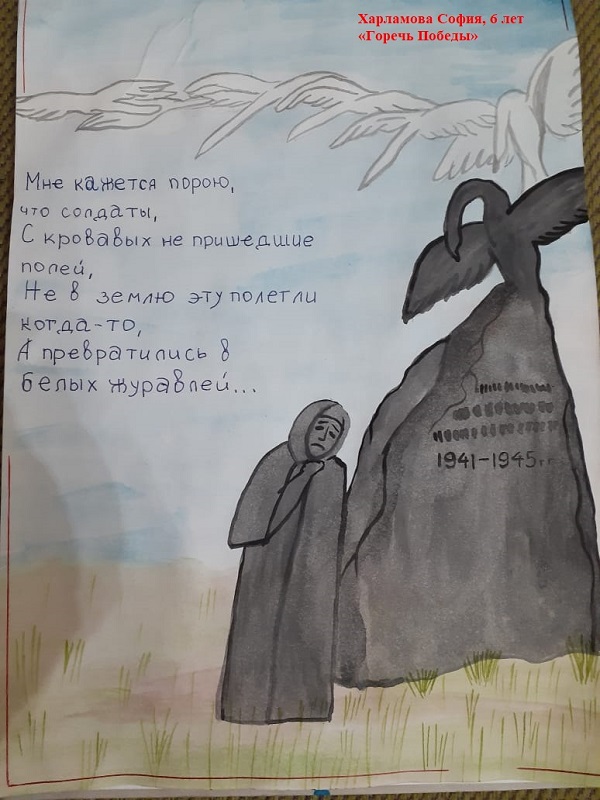 Харламова София, 6 лет
«Горечь Победы»
Мне кажется порою,
что солдаты,
С кровавых не пришедшие
полей,
Не в землю эту полегли
когда-то,
А превратились в
белых журавлей...
1941-1945г.г.